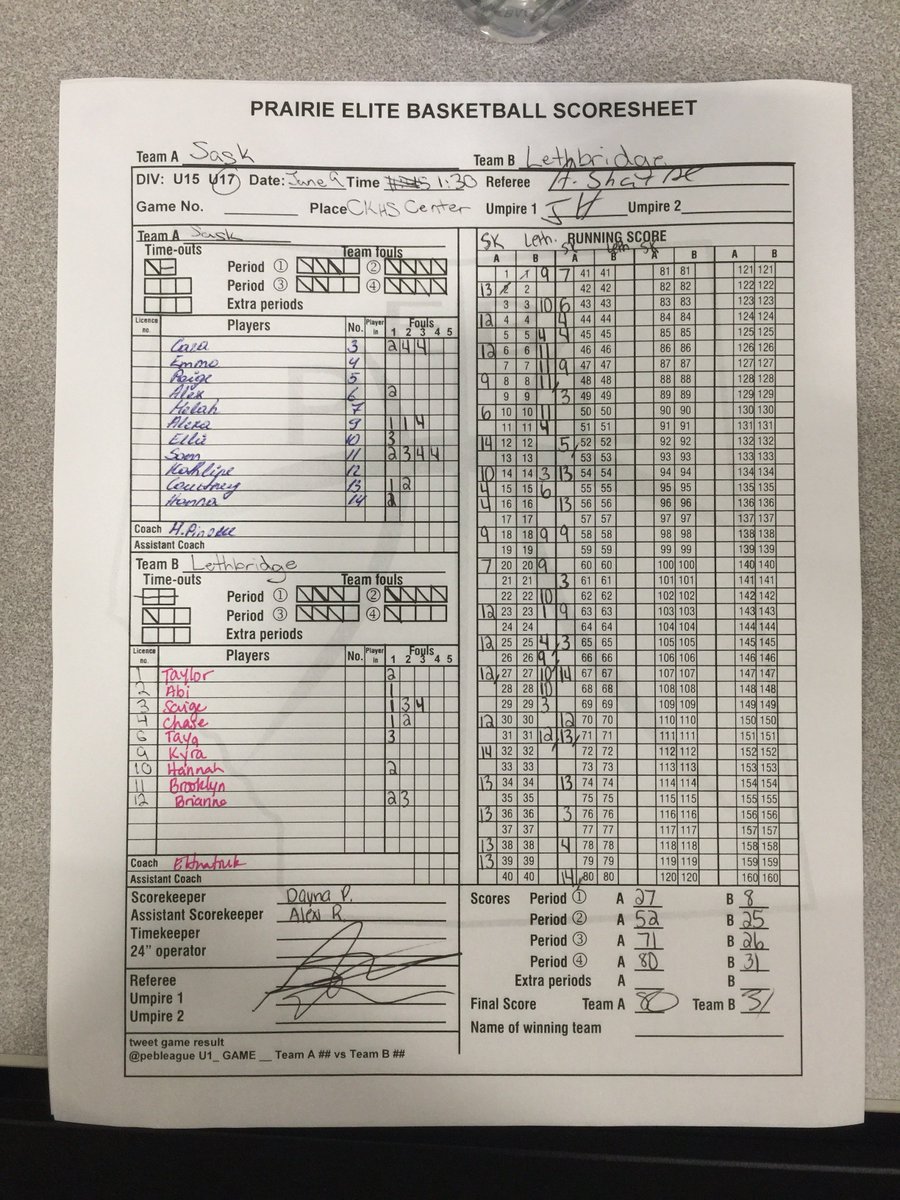 PRAIRIE ELITE BASKETBALL SCORESHEET
Team A Sask Team B Lethbridge
DIV: U15 U17 Date: June 9 Time 1:30 Referee
Game No. Place CKHS Center Umpire 1 Umpire 2
Team A Sask
Time-outs Team fouls
Period ① ②
Period ③ ④
Extra periods
Licence no. Players No. Player in Fouls 1 2 3 4 5
Cara 3 2 4 4
Emma 4
Paige 5
Alex 6 2
Helah 7
Alexa 9 1 1 4
Ellie 10 3
Sam 11 2 3 4 4
12
Courtney 13 1 2
Hanna 14 2
Coach
Assistant Coach
Team B Lethbridge
Time-outs Team fouls
Period ① ②
Period ③ ④
Extra periods
Licence no. Players No. Player in Fouls 1 2 3 4 5
1 Taylor 2
2 Abi 1
3 Saige 1 3 4
4 Chase 1 2
6 Taya 3
9 Kyra
10 Hannah 2
11 Brooklyn
12 Brianne 2 3
Coach
Assistant Coach
Scorekeeper Dayna P.
Assistant Scorekeeper Alexi R.
Timekeeper
24" operator
Referee
Umpire 1
Umpire 2
tweet game result
@pebleague U1_ GAME __ Team A ## vs Team B ##
SK Leth. RUNNING SCORE
A B A B A B A B
1 1 9 7 41 41 81 81 121 121
13 2 2 42 42 82 82 122 122
3 3 10 6 43 43 83 83 123 123
12 4 4 4 44 44 84 84 124 124
5 5 4 4 45 45 85 85 125 125
12 6 6 11 46 46 86 86 126 126
7 7 11 9 47 47 87 87 127 127
9 8 8 11 48 48 88 88 128 128
9 9 3 49 49 89 89 129 129
6 10 10 11 50 50 90 90 130 130
11 11 4 51 51 91 91 131 131
14 12 12 5 52 52 92 92 132 132
13 13 53 53 93 93 133 133
10 14 14 3 13 54 54 94 94 134 134
4 15 15 6 55 55 95 95 135 135
4 16 16 13 56 56 96 96 136 136
17 17 57 57 97 97 137 137
9 18 18 9 9 58 58 98 98 138 138
19 19 59 59 99 99 139 139
7 20 20 9 60 60 100 100 140 140
21 21 3 61 61 101 101 141 141
22 22 10 62 62 102 102 142 142
12 23 23 1 9 63 63 103 103 143 143
24 24 64 64 104 104 144 144
12 25 25 4 3 65 65 105 105 145 145
26 26 9 66 66 106 106 146 146
12 27 27 10 14 67 67 107 107 147 147
28 28 10 68 68 108 108 148 148
29 29 3 69 69 109 109 149 149
12 30 30 12 70 70 110 110 150 150
31 31 12 13 71 71 111 111 151 151
14 32 32 72 72 112 112 152 152
33 33 73 73 113 113 153 153
13 34 34 13 74 74 114 114 154 154
35 35 75 75 115 115 155 155
13 36 36 3 76 76 116 116 156 156
37 37 77 77 117 117 157 157
13 38 38 4 78 78 118 118 158 158
13 39 39 79 79 119 119 159 159
40 40 14 80 80 120 120 160 160
Scores Period ① A 27 B 8
Period ② A 52 B 25
Period ③ A 71 B 26
Period ④ A 80 B 31
Extra periods A B
Final Score Team A 80 Team B 31
Name of winning team